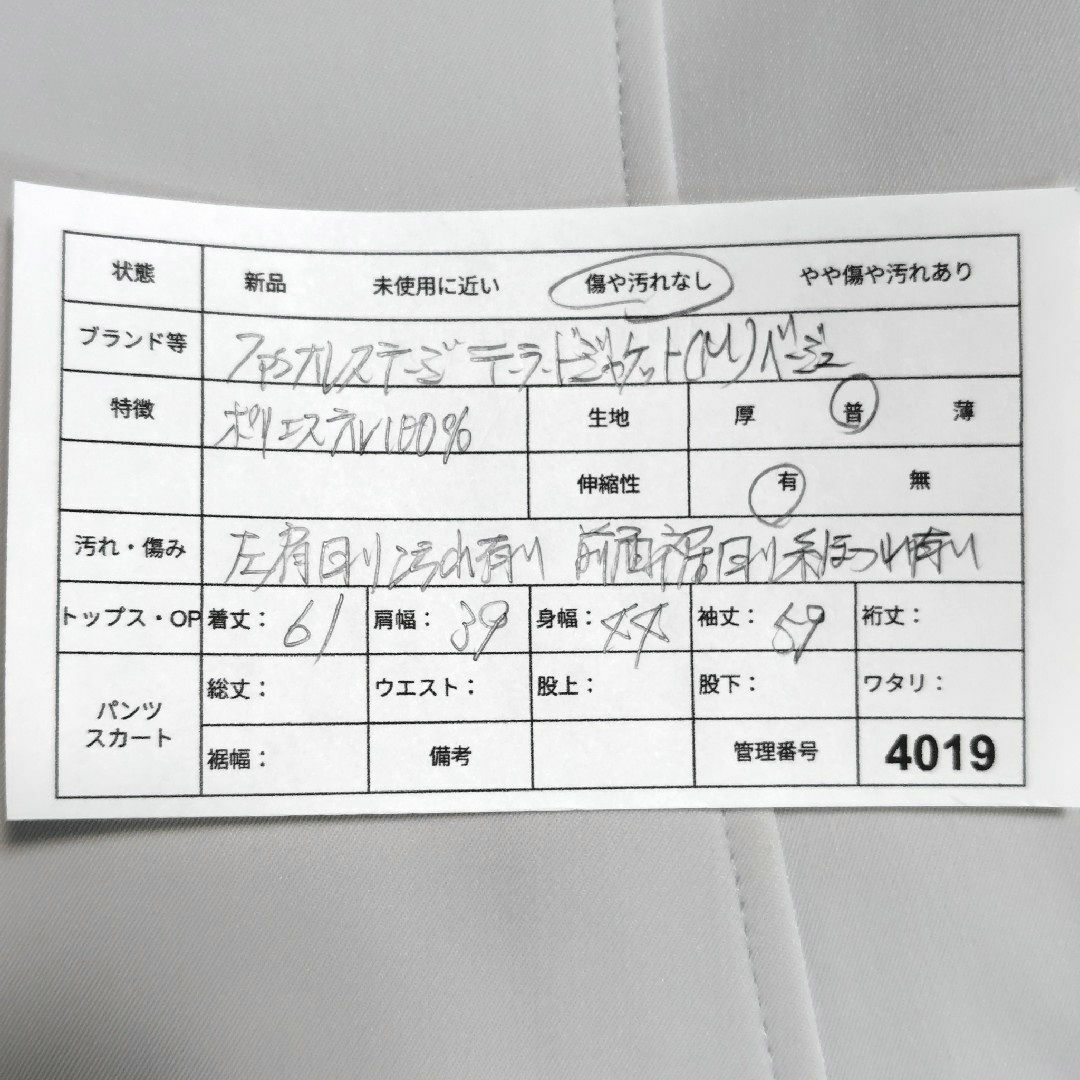 状態 新品 未使用に近い 傷や汚れなし やや傷や汚れあり
ブランド等 ファンオレステージ テーラードジャケット(M)ベージュ
特徴 ポリエステル100% 生地 厚 普 薄
伸縮性 有 無
汚れ・傷み 左肩回り汚れ有り 前面裾回り糸ほつれ有り
トップス・OP 着丈: 61 肩幅: 39 身幅: 44 袖丈: 59 裄丈:
パンツ スカート 総丈: ウエスト: 股上: 股下: ワタリ:
裾幅: 備考 管理番号 4019